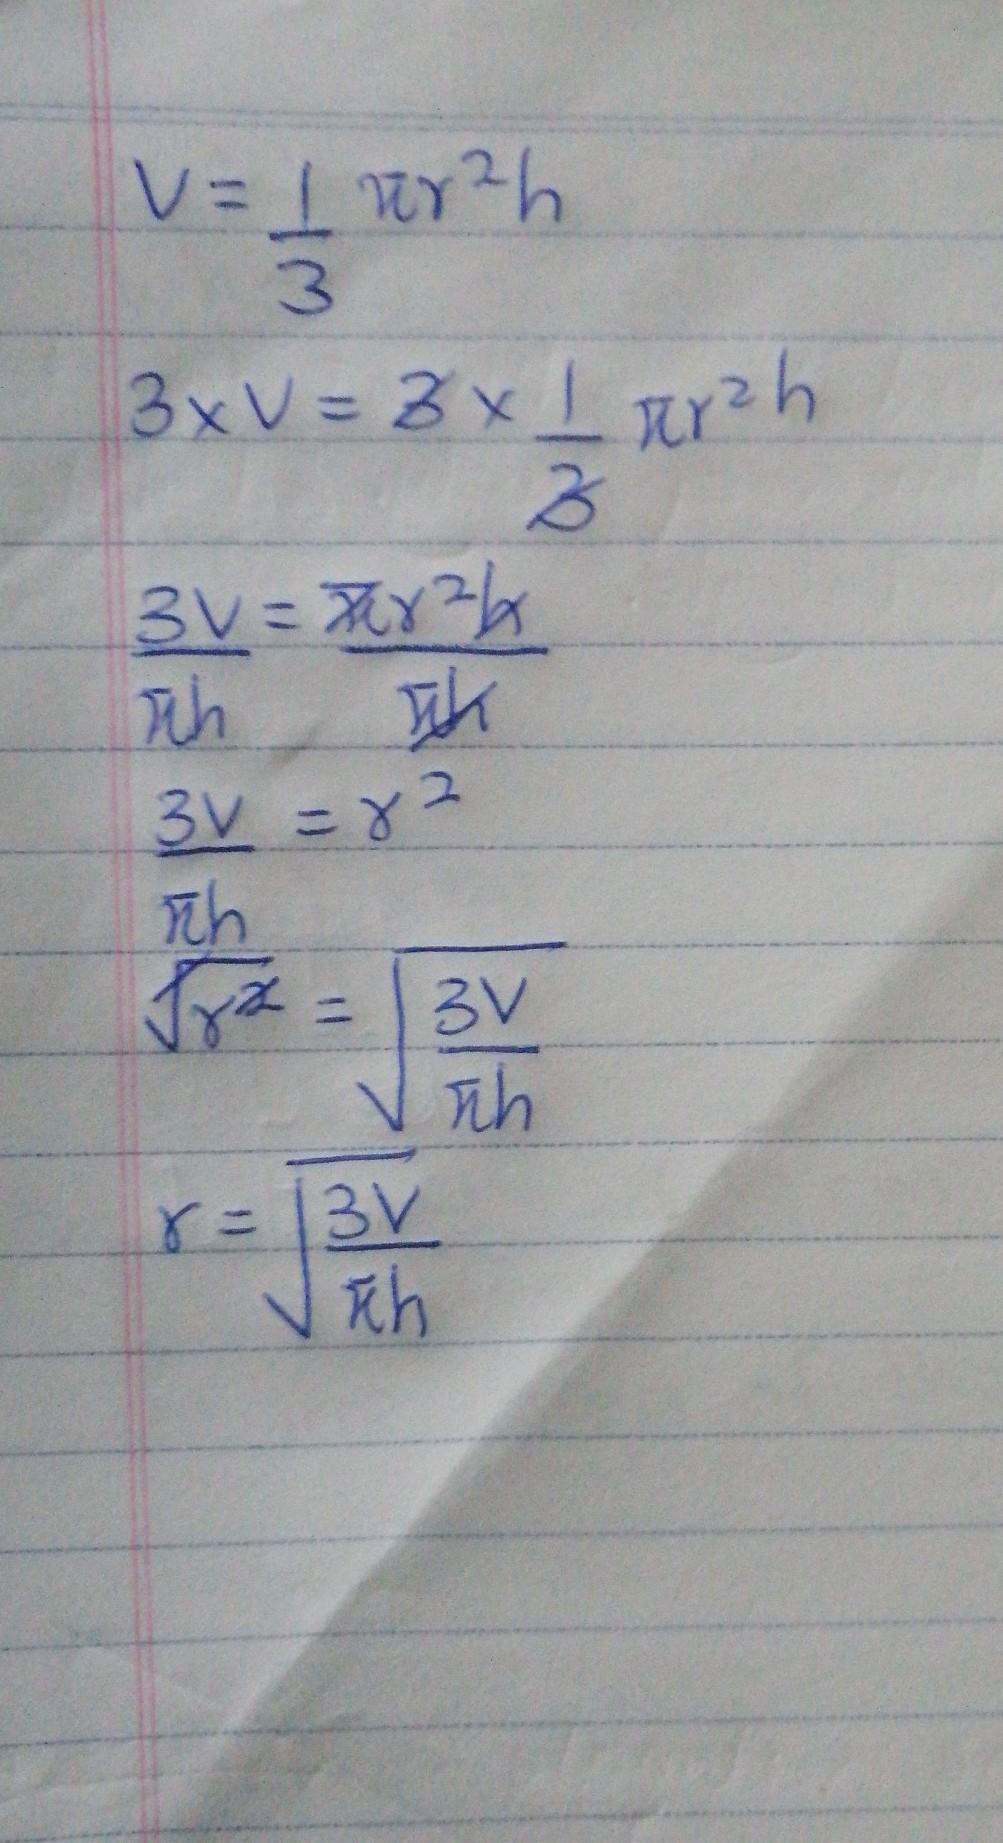 V = 1/3 πr²h
3 × V = 3 × 1/3 πr²h
3V/πh = πr²h/πh
3V/πh = r²
√r² = √(3V/πh)
r = √(3V/πh)